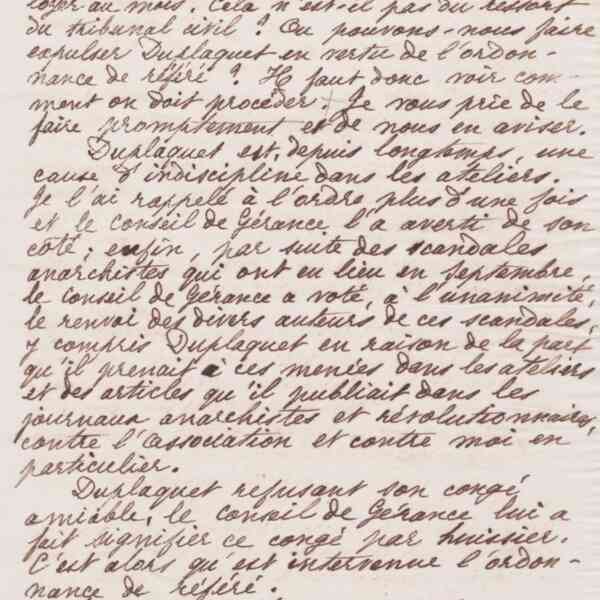 loyer au mois. Cela n'est-il pas du ressort
du tribunal civil ? Ou pouvons-nous faire
expulser Duplaquet en vertu de l'ordon-
nance de référé ? Il faut donc voir com-
ment on doit procéder. Je vous prie de le
faire promptement et de nous en aviser.
Duplaquet est, depuis longtemps, une
cause d'indiscipline dans les ateliers.
Je l'ai rappelé à l'ordre plus d'une fois
et le Conseil de Gérance l'a averti de son
côté ; enfin, par suite des scandales
anarchistes qui ont eu lieu en septembre,
le Conseil de Gérance a voté, à l'unanimité,
le renvoi des divers auteurs de ces scandales,
y compris Duplaquet en raison de la part
qu'il prenait à ces menées dans les ateliers
et des articles qu'il publiait dans les
journaux anarchistes et révolutionnaires,
contre l'association et contre moi en
particulier.
Duplaquet refusant son congé
amiable, le Conseil de Gérance lui a
fait signifier ce congé par huissier.
C'est alors qu'est intervenue l'ordon-
nance de référé.